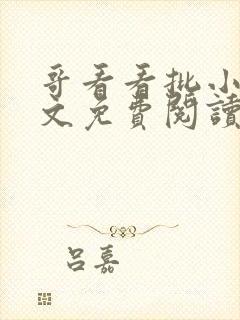 哥看看批小
文免費閱讀
呂嘉